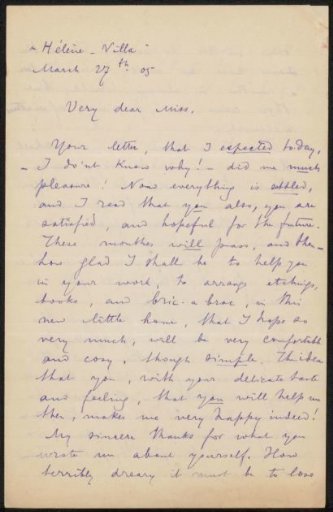 "Hélène-Villa"
March 27th 05
Very dear Miss.
Your letter, that I expected to-day,
- I do'nt know why! - did me much
pleasure! Now everything is settled,
and I read that you also, you are
satisfied, and hopeful for the future.
These months will pass, and then -
how glad I shall be to help you
in your work, to arrange etchings,
books, and bric-a-brac, in this
new little home, that I hope so
very much, will be very comfortable
and cosy, though simple. The idea
that you, with your delicate taste
and feeling, that you will help me
then, makes me very happy indeed!
My sincere thanks for what you
wrote me about yourself. How
terribly dreary it must be to loss